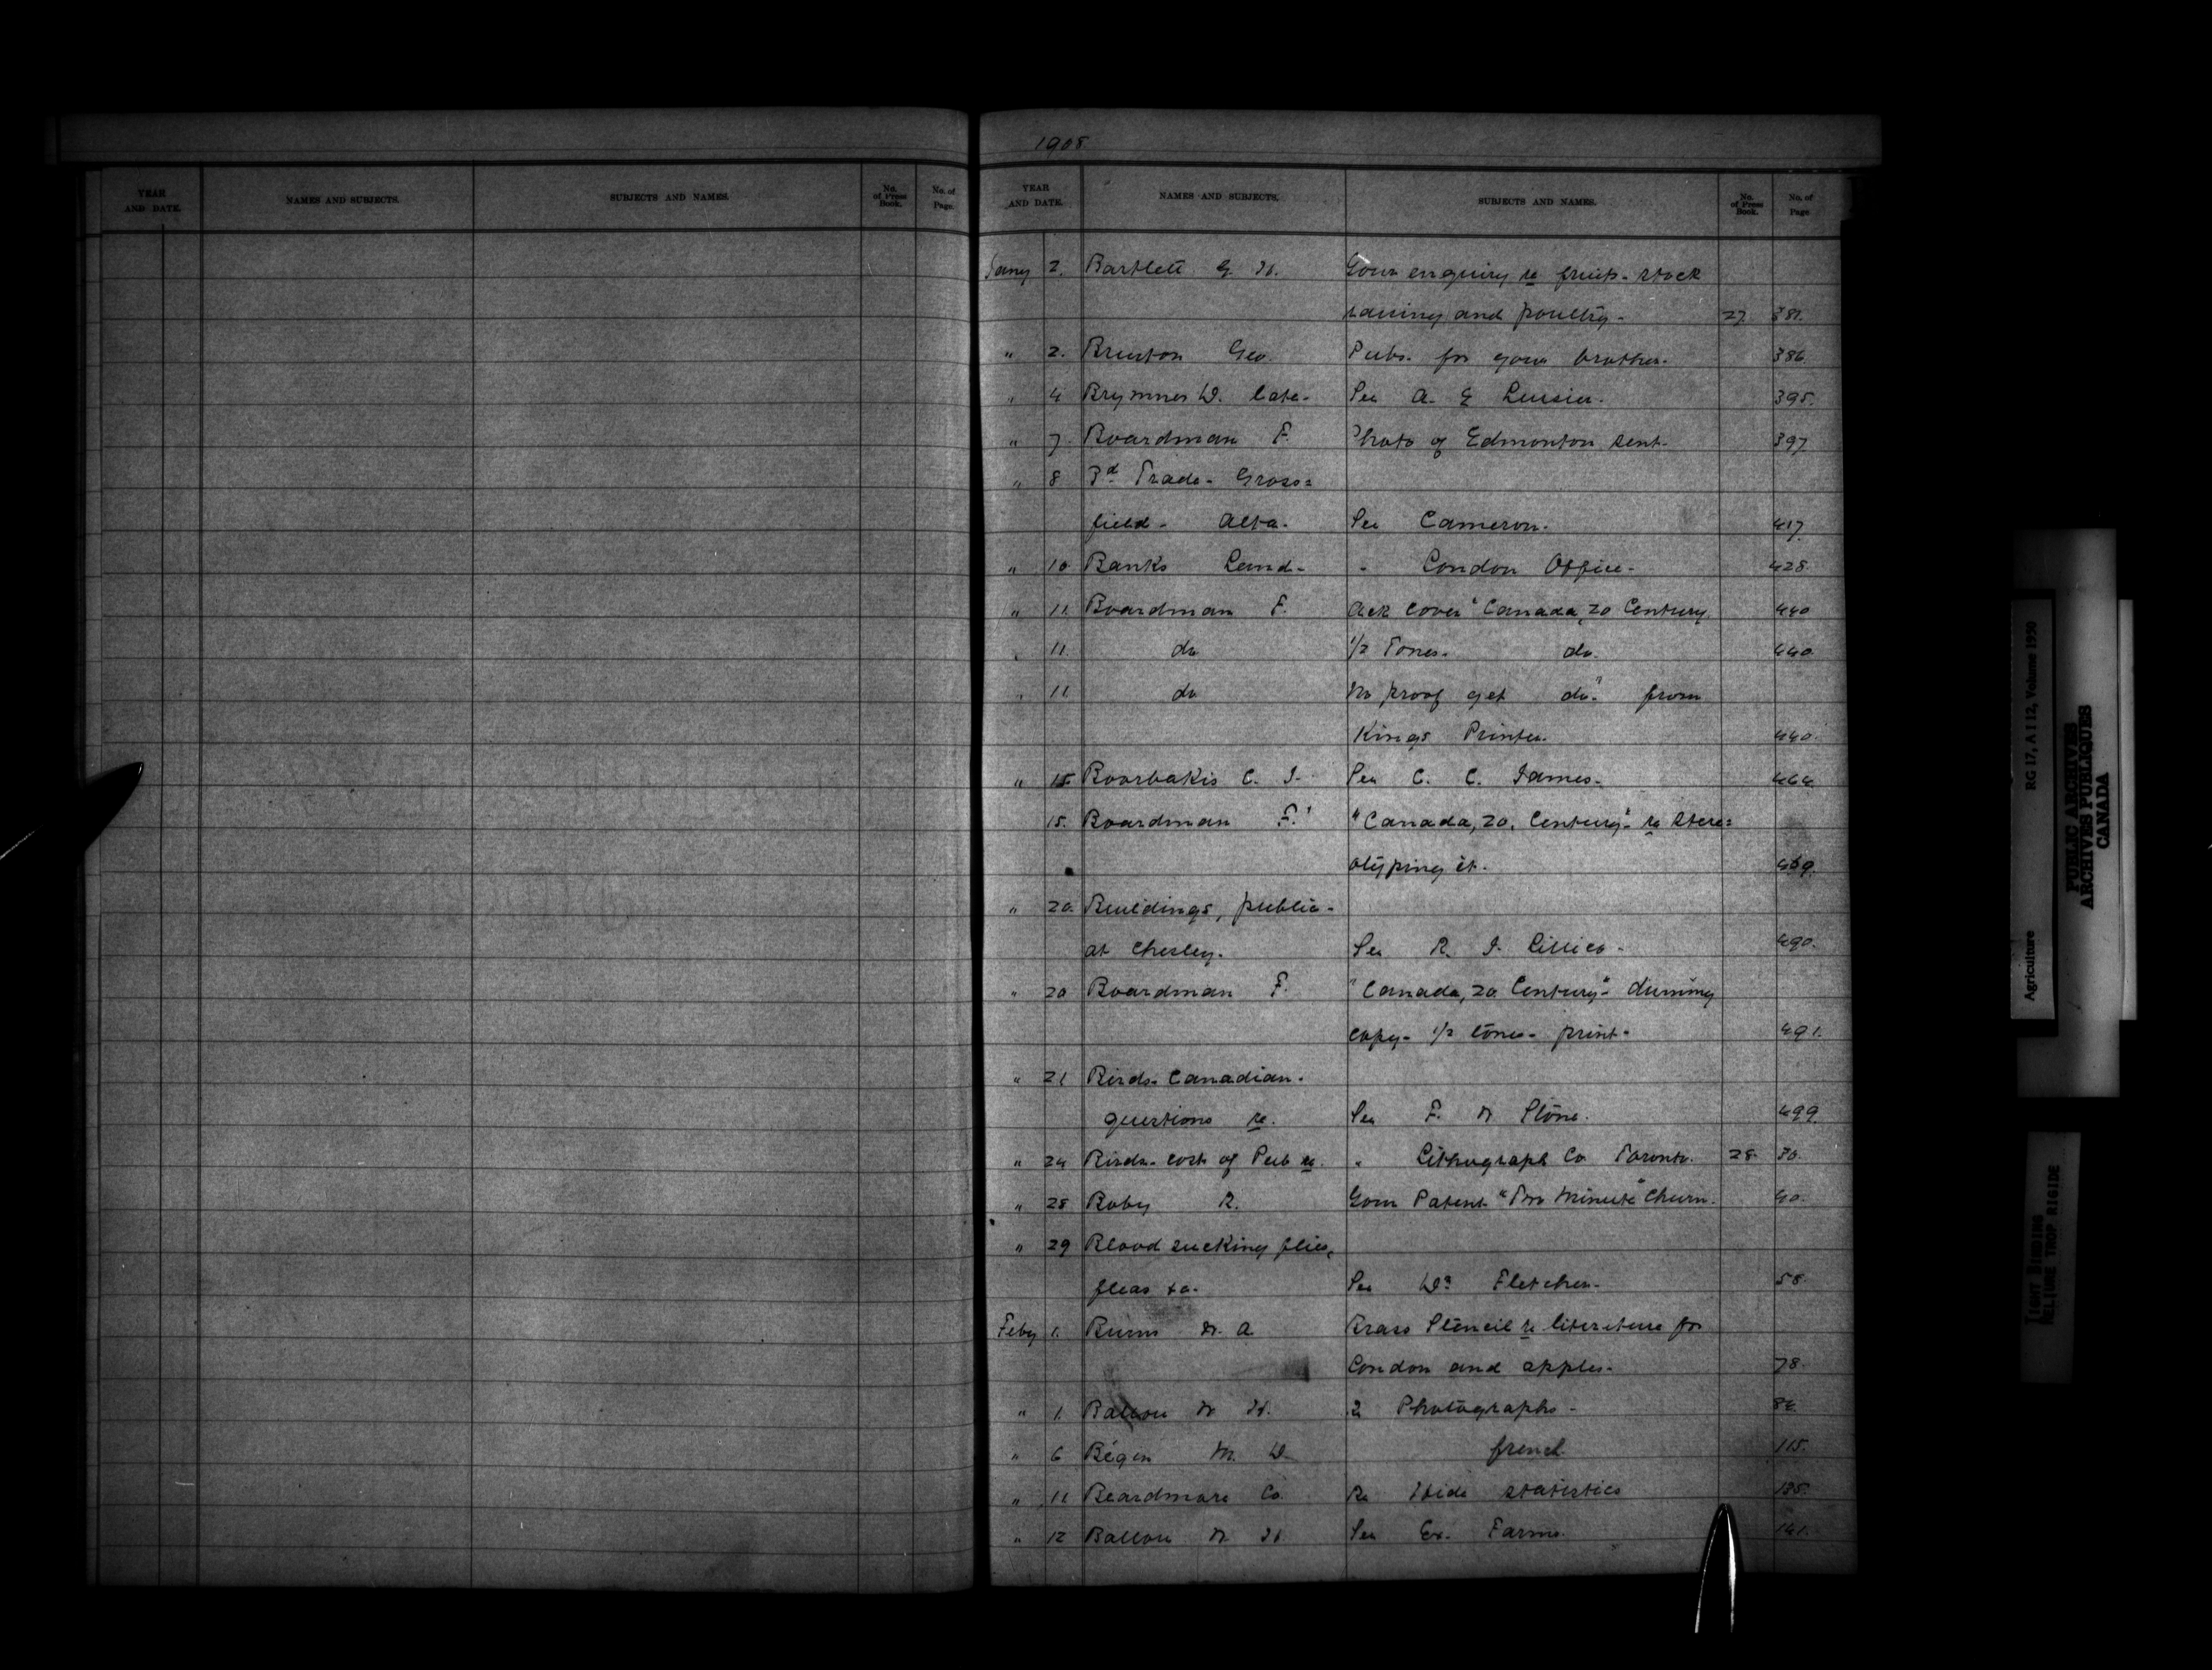 1908.
YEAR AND DATE. NAMES AND SUBJECTS. SUBJECTS AND NAMES. No. of Press Book. No. of Page.
YEAR AND DATE. NAMES AND SUBJECTS. SUBJECTS AND NAMES. No. of Press Book. No. of Page
Jany 2. Bartlett G. H. Your enquiry re fruit- stock
raising and poultry- 27 381.
" 2. Bruton Geo. Pubs. for your brother. 386
" 4 Brymner D. late- See A. E 395.
" 7. Boardman F. Photo of Edmonton sent- 397
" 8 Bd Trade- Cross=
field- Alta. See Cameron. 417
" 10 Banks Land- " London Office- 428.
" 11. Boardman F. Ack cover "Canada, 20 Century 440
" 11. do 1/2 Tones- do. 440.
" 11 do No proof get do." from
Kings Printer. 440.
" 15 C. J. See C. C. James- 464
15. Boardman F. "Canada, 20. Century"- re stere=
otyping it. 469.
" 20. Buildings, public-
at Chesley. See R. J. Lillico- 490.
" 20 Boardman F. "Canada, 20 Century"- dummy
copy- 1/2 tones- print- 491.
" 21 Birds- Canadian.
questions re. See F. W Stone. 499.
" 24 Birds- cost of Pub re. " Lithograph Co Toronto. 28. 30.
" 28 Boby R. Your Patent "Two Minute" Churn. 40.
" 29 Blood sucking flies,
fleas &c. See Dr Fletcher. 58.
Feby 1. Burns W. A. Brass Stencil re literature for
London and apples. 78.
" 1. Ballou W H. 2 Photographs- 84.
" 6 Bégin M. D french 115.
" 11 Beardmore Co. Re Hide statistics 135.
" 12 Ballou W H. See Ex. Farms. 141.
Agriculture RG 17, A I 12, Volume 1950
PUBLIC ARCHIVES
ARCHIVES PUBLIQUES
CANADA
TIGHT BINDING
RELIURE TROP RIGIDE